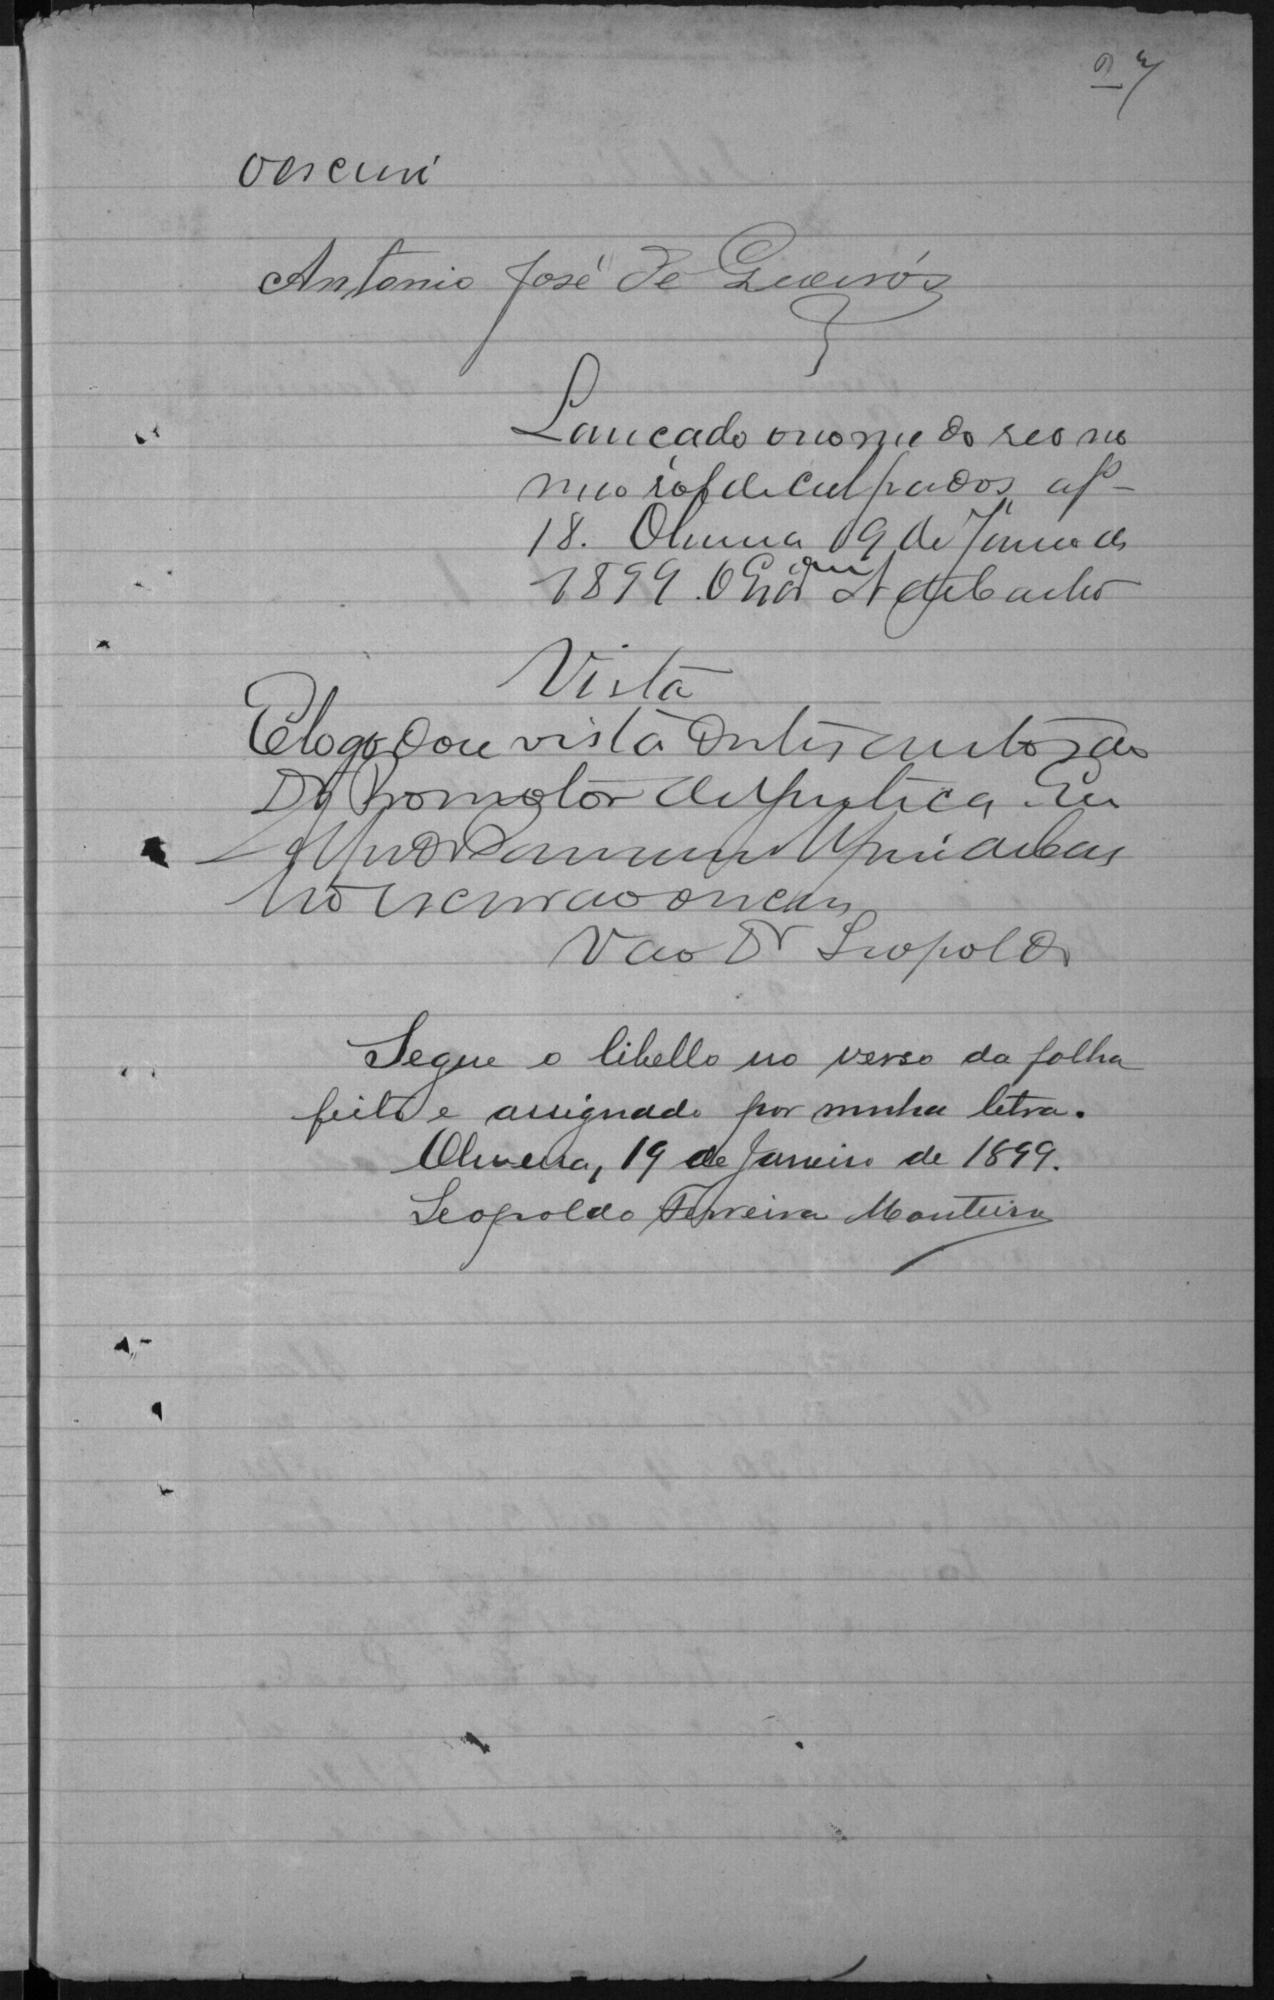 27
o escrevi
Antonio José de Queirós
Lancado o nome do reo no
meo rol de culpados af
18. Oliveira 19 de Janro de
1899. O Escram
Vista
E logo dou vista destes autos ao
Dr Promotor de Justica. Eu
escrivão o escrevi
Vao Dr Leopoldo
Segue o libello no verso da folha
feito e assignado por minha letra.
Oliveira, 19 de Janeiro de 1899.
Leopoldo Ferreira Monteiro